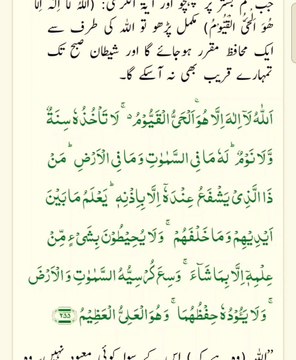 جب تم بستر پر پہنچو اور آیۃ الکرسی: (اَللّٰهُ لَا اِلٰهَ اِلَّا
هُوَ اَلْحَیُّ الْقَیُّوْمُ) مکمل پڑھو تو اللہ کی طرف سے
ایک محافظ مقرر ہوجائے گا اور شیطان صبح تک
تمہارے قریب بھی نہ آسکے گا۔
اَللّٰهُ لَاۤ اِلٰهَ اِلَّا هُوَ ۚ اَلْحَیُّ الْقَیُّوْمُ ۚ۬ لَا تَاْخُذُهٗ سِنَةٌ
وَّ لَا نَوْمٌ ؕ لَهٗ مَا فِی السَّمٰوٰتِ وَ مَا فِی الْاَرْضِ ؕ مَنْ
ذَا الَّذِیْ یَشْفَعُ عِنْدَهٗۤ اِلَّا بِاِذْنِهٖ ؕ یَعْلَمُ مَا بَیْنَ
اَیْدِیْهِمْ وَ مَا خَلْفَهُمْ ۚ وَ لَا یُحِیْطُوْنَ بِشَیْءٍ مِّنْ
عِلْمِهٖۤ اِلَّا بِمَا شَآءَ ۚ وَسِعَ كُرْسِیُّهُ السَّمٰوٰتِ وَ الْاَرْضَ
ۚ وَ لَا یَـُٔوْدُهٗ حِفْظُهُمَا ۚ وَ هُوَ الْعَلِیُّ الْعَظِیْمُ ﴿۲۵۵﴾
”اللہ (وہ ہے کہ) اس کے سوا کوئی معبود نہیں، وہ